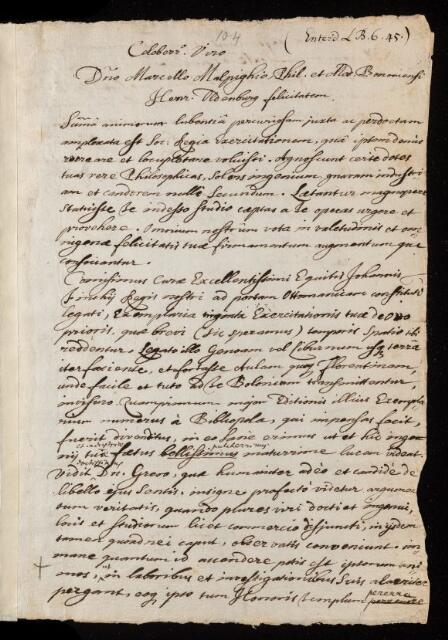 104
(Enterd LB. 6. 45.)
Celeberr. Viro
Dno Marcello Malpighio Phil. et Med. Bononiensi
Henr. Oldenburg felicitatem.
Summâ animorum lubentiâ percurissam juxta ac perdoctam
amplexata est Soc. Regia Exercitationem, quâ iptam denuò
et locupletare voluisti. Agnoscunt certè dotes
tuas verè Philosophicas, Solers ingenium, gnaram industri
am et candorem nulli Secundum. Lætantur magnopere
Statuisse Te indesso studio cæptas a Te operas urgere et
provehere. Omnium nostrûm vota in valetudinis et om
nigenæ felicitatis tuæ firmamentum augmentum que
Curæ Excellentissimi Equitis Johannis
Finchij Regis nostri ad portam Ottomanicam constituti
legati, Exemplaria viginti Exercitationis tuæ de Ovo
prioris, quæ brevi (sic speramus) temporis spatio tibi
reddentur. Legato illo Genoam vel Liburnum usq terrâ
iter faciente, et fortasse Aulam quoq Florentinam,
unde facile et tuto ad Te Bononiam transmittantur,
invisere. Quamprimum major Editionis illius Exempla
rium numerus à Bibliopola, qui impensas facit,
fuerit divenditus, in eo sane erimus ut et hic inge
nij tui fœtus bellissimus maturrime lucem videat.
Vidit Dn. Grevo, qui humaniter adeò et candidè de
libello ejus sentis, insigne profecto videtur argumen
tum veritatis, quando plures viri docti et ingenui,
locis et studiorum licet commercio disjuncti, in ijsdem
tamen quoad rei caput, observatis conveniunt. im
mane quantum id accendere potis est iptorum ani
mos, ut in laboribus et investigationibus suis alacriter
pergant, eoq ipso tum Honoris templum